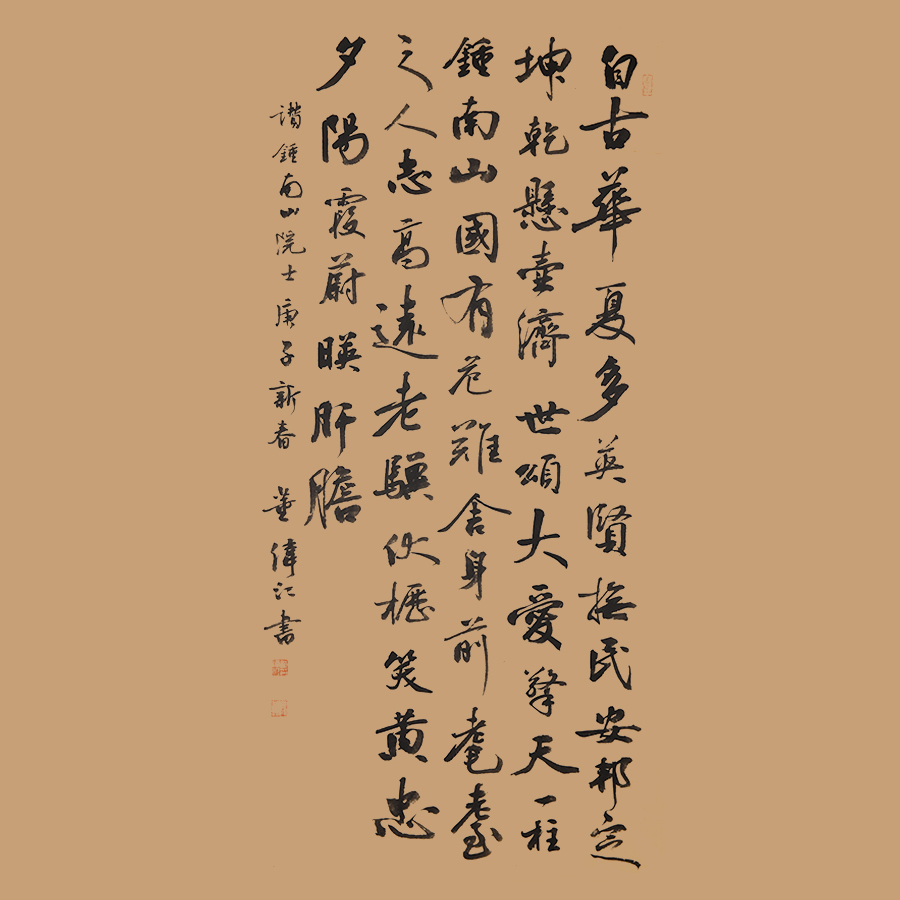 自古華夏多英賢撫民安邦定
坤乾懸壺濟世頌大愛擎天一柱
鍾南山國有危難舍身前耄耋
之人志高遠老驥伏櫪笑黄忠
夕陽霞蔚暎肝膽
讚鍾南山院士庚子新春 董偉江書